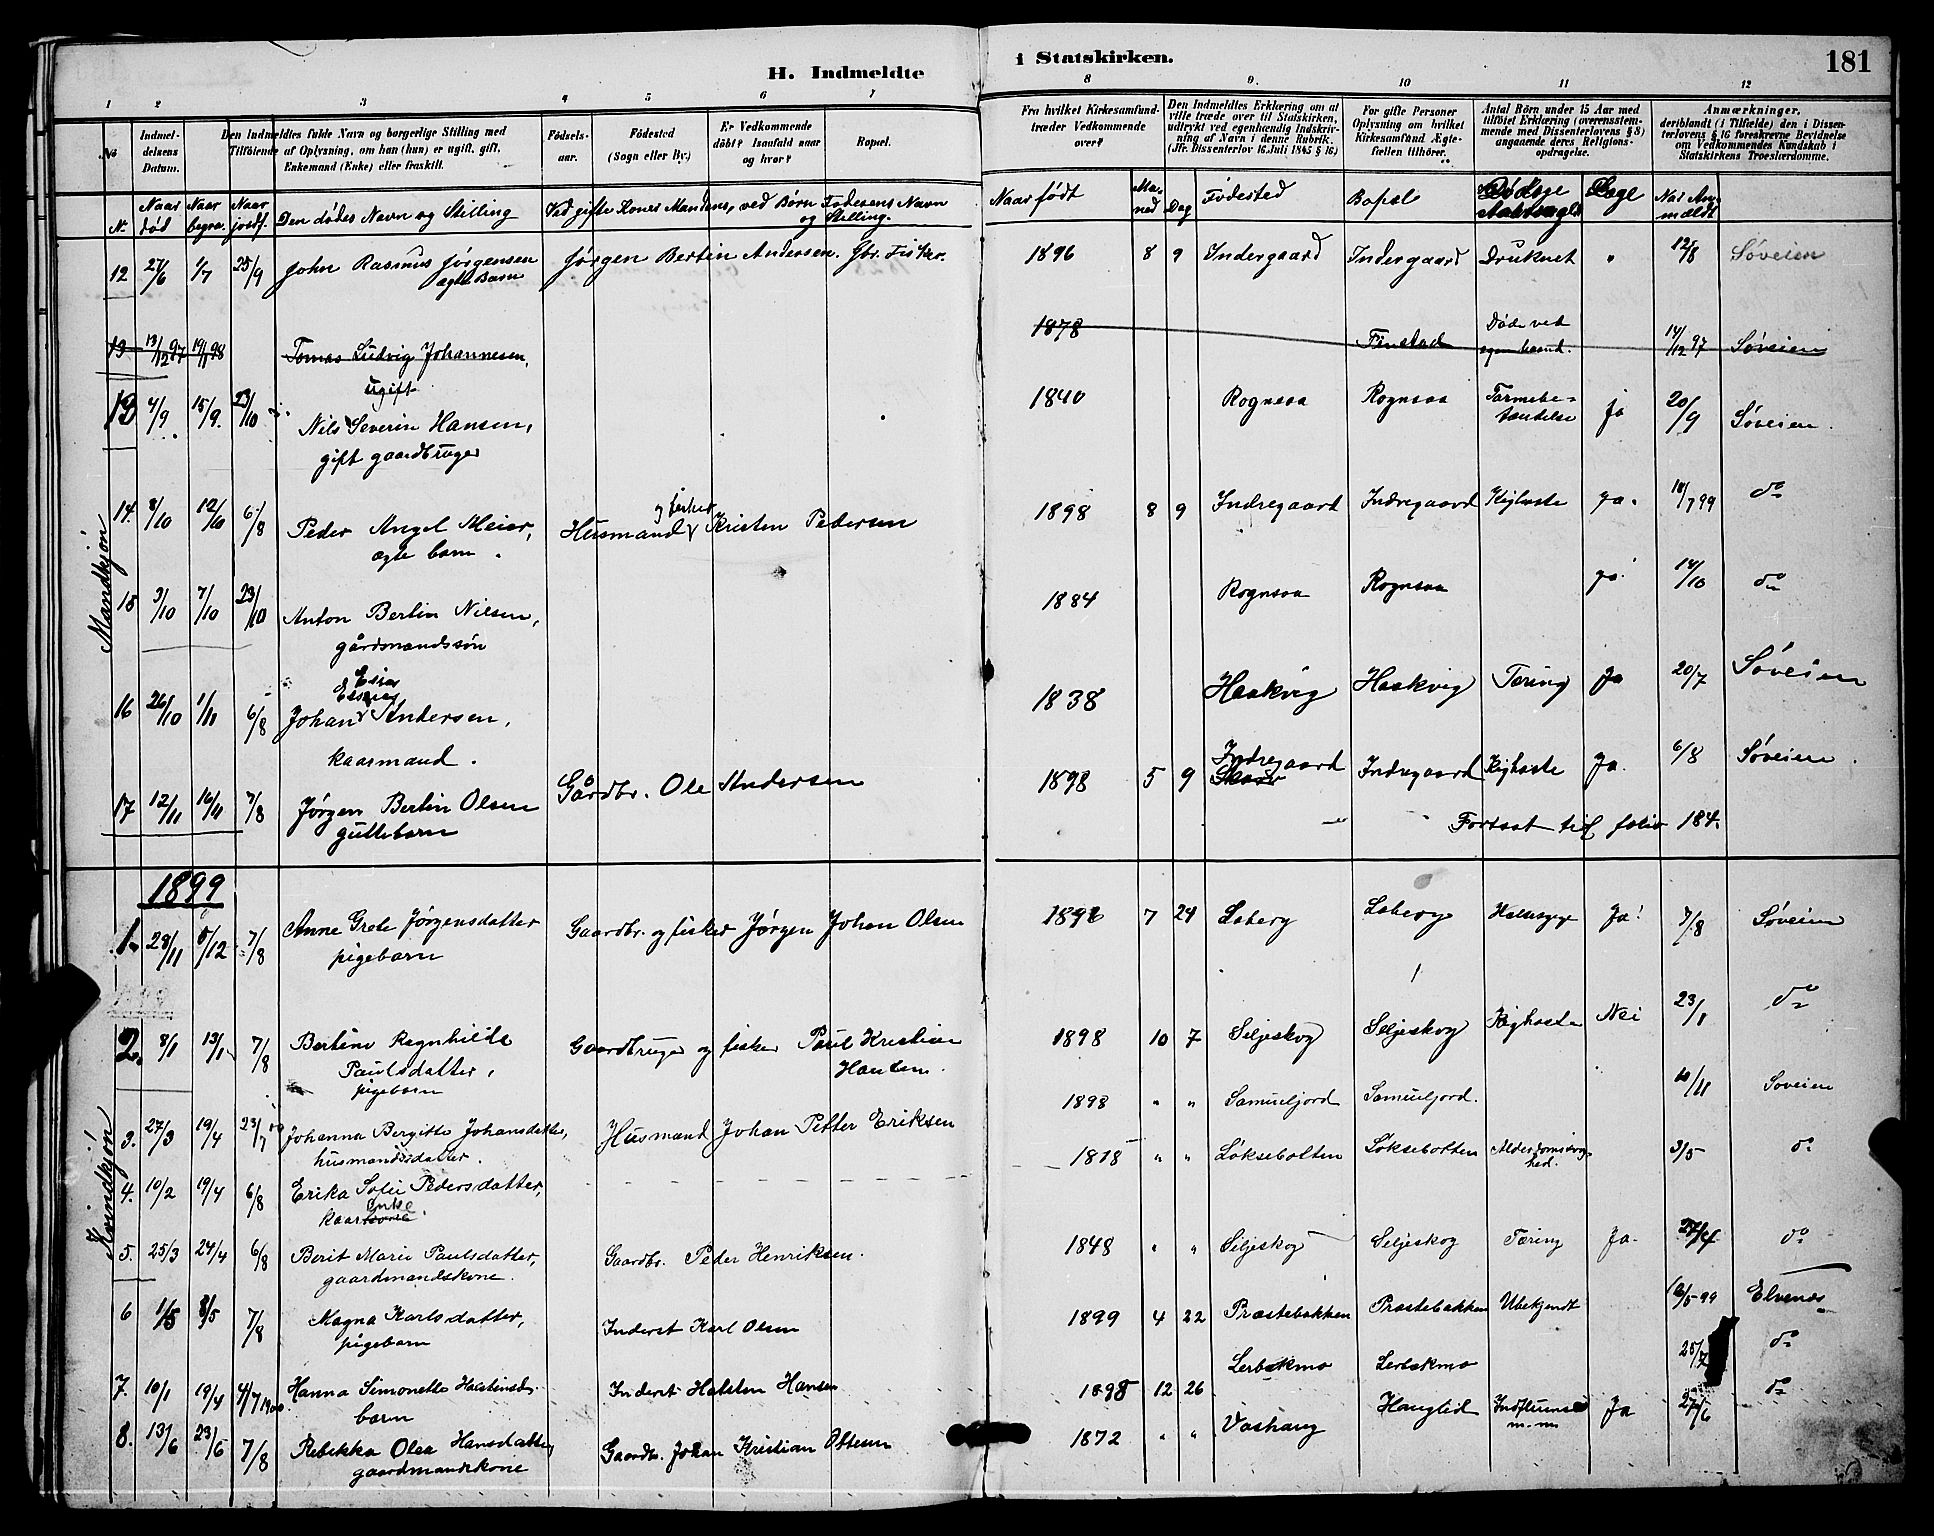 H. Indmeldte i Statskirken. 181
1 2 3 4 5 6 7 8 9. 10 11 12
No
Indmeldelsens Datum.
Den Indmeldtes fulde Navn og borgerlige Stilling med Tilföiende af Oplysning, om han (hun) er ugift, gift, Enkemand (Enke) eller fraskilt.
Födselsaar.
Födested (Sogn eller By.)
Er Vedkommende döbt? Isaafald naar og hvor?
Bopæl.
Fra hvilket Kirkesamfund træder Vedkommende over?
Den Indmeldtes Erklæring om at ville træde over til Statskirken, udtrykt ved egenhændig Indskrivning af Navn i denne Rubrik. (Jfr. Dissenterlov 16 Juli 1845 § 16)
For gifte Personer Oplysning om hvilket Kirkesamfund Ægtefællen tilhörer.
Antal Börn under 15 Aar med tilföiet Erklæring (overensstemmende med Dissenterlovens § 8) angaaende deres Religionsopdragelse.
Anmærkninger, deriblandt (i Tilfælde) den i Dissenterlovens § 16 foreskrevne Bevidnelse om Vedkommendes Kundskab i Statskirkens Troeslærdomme.
Nr. Naar død Naar begra. Naar jordf. Den dødes Navn og Stilling Ved gifte Koner Mandens, ved Børn Faderens Navn og Stilling. Naar født Maaned Dag Fødested Bopæl Dødsaarsag Læge Naar Anmældt
Mandkjøn
12 27/6 1/7 25/9 John Rasmus Jørgensen Jørgen Bertin Andersen. Gbr. Fisker. 1896 8 9 Indergaard Indergaard Druknet " 12/8 Søveien
ægte Barn
13 13/12 97 19/1 98 Tomas Ludvig Johannesen, 1878 Finstad Døde ved egen haand. 14/12 97 Søveien
ugift
13 4/9 15/9. 23/10 Nils Severin Hansen, 1840 Rognsaa Rognsaa Tarmbetændelse Ja 20/9 Søveien.
gift gaardbruger
14. 8/10 12/10 6/8 Peder Angel Meier, Husmand og fisker Kristen Pedersen 1898 8 9 Indregaard Indregaard Kighoste Ja. 18/7 99 do
ægte barn.
15 3/10 7/10 23/10 Anton Bertin Nilsen, 1884 Rognsaa Rognsaa ja 14/10 do
gårdmandssøn
16 26/10 1/11 6/8 Johan Andersen, 1838 Haakvig Haakvig Tæring Ja 20/7 Søveien
kaarmand.
17 12/11 16/11 7/8 Jørgen Bertin Olsen Gårdbr. Ole Andersen 1898 5 9 Indregaard Indregaard Kighoste Ja. 6/8 Søveien.
guttebarn
Fortsat til folio 184.
1899
Kvindkjøn
1. 28/11 5/12 7/8 Anne Grete Jørgensdatter Gaardbr. og fisker Jørgen Johan Olsen 7 24 Laberg Laberg Ja! 7/8 Søveien
pigebarn
2. 8/1 13/1 7/8 Bertine Regnhilde Gaardbruger og fisker Paul Kristian Hansen. 1898 10 7 Seljeskog Seljeskog Kighoste Nei 23/1 do
Paulsdatter,
pigebarn
3. 27/3 19/4 23/7 Johanna Bergitte Johansdatter, Husmand Johan Petter Eriksen 1898 " " Samueljord Samueljord. 10/11 Soveien
husmandsdatter.
4. 10/2 19/4 6/8 Erika Sofie Pedersdatter, 1818 " " Løksebotten Løksebotten Alderdomssvaghed. 3/5 do
kaarkone enke
5. 25/3 24/4 6/8 Berit Marie Paulsdatter, Gaardbr. Peder Henriksen. 1848 " " Seljeskog Seljeskog Tæring Ja. 27/4 do
gaardmandskone.
6 1/5 8/5 7/8 Magna Karlsdatter, Inderst Karl Olsen 1899 4 22 Præstebakken Præstebakken Ubekjendt 12/5 99 Elvenæs
pigebarn
7. 10/1 19/4 4/7 1900 Hanna Simonette Halstensd. Inderst Halsten Hansen 1898 12 26 Lerbekmo Lerbekmo 25/7 do
barn
8. 13/6 23/6 7/8 Rebekka Olea Hansdatter, Gaardbr. Johan Kristian Ottesen 1872 " " Vashaug Hauglid Influensa m.m. Ja 27/6 do
gaardmandskone